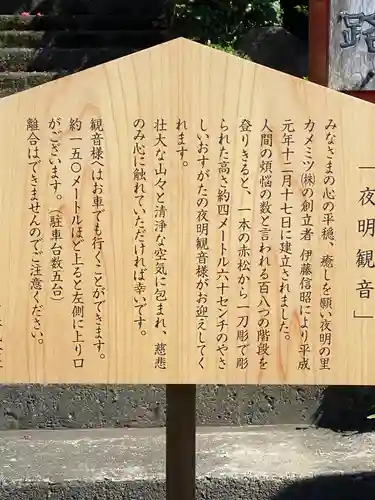 「夜明観音」
みなさまの心の平穏、癒しを願い夜明の里
カメミツ㈱の創立者 伊藤信昭により平成
元年十二月十七日に建立されました。
人間の煩悩の数と言われる百八つの階段を
登りきると、一本の赤松から一刀彫で彫
られた高さ約四メートル六十センチのやさ
しいおすがたの夜明観音様がお迎えしてく
れます。
壮大な山々と清浄な空気に包まれ、慈悲
のみ心に触れていただければ幸いです。
観音様へはお車でも行くことができます。
約一五〇メートルほど上ると左側に上り口
がございます。(駐車台数五台)
離合はできませんのでご注意ください。
路